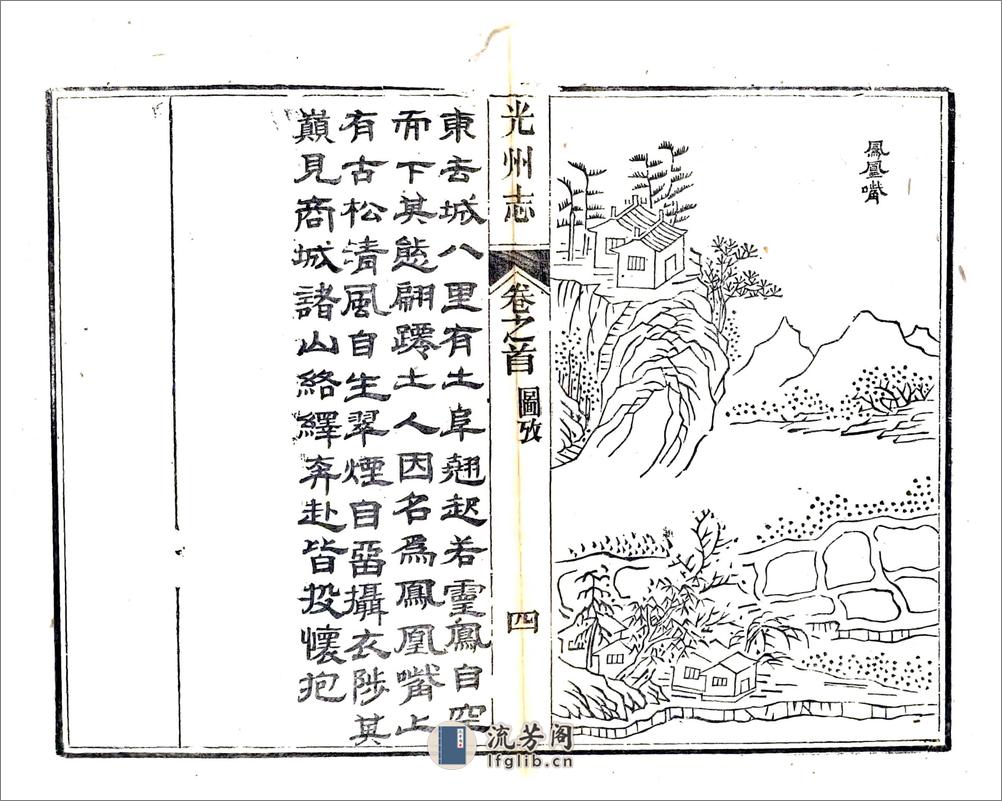 鳳凰嘴
光州志
卷之首
圖攷
四
東去城八里有土阜翹起若靈鳳自空
而下其態翩躚土人因名爲鳳凰嘴上
有古松清風自生翠煙自畱攝衣陟其
巔見商城諸山絡繹奔赴皆投懷抱
流芳阁
lfglib.cn